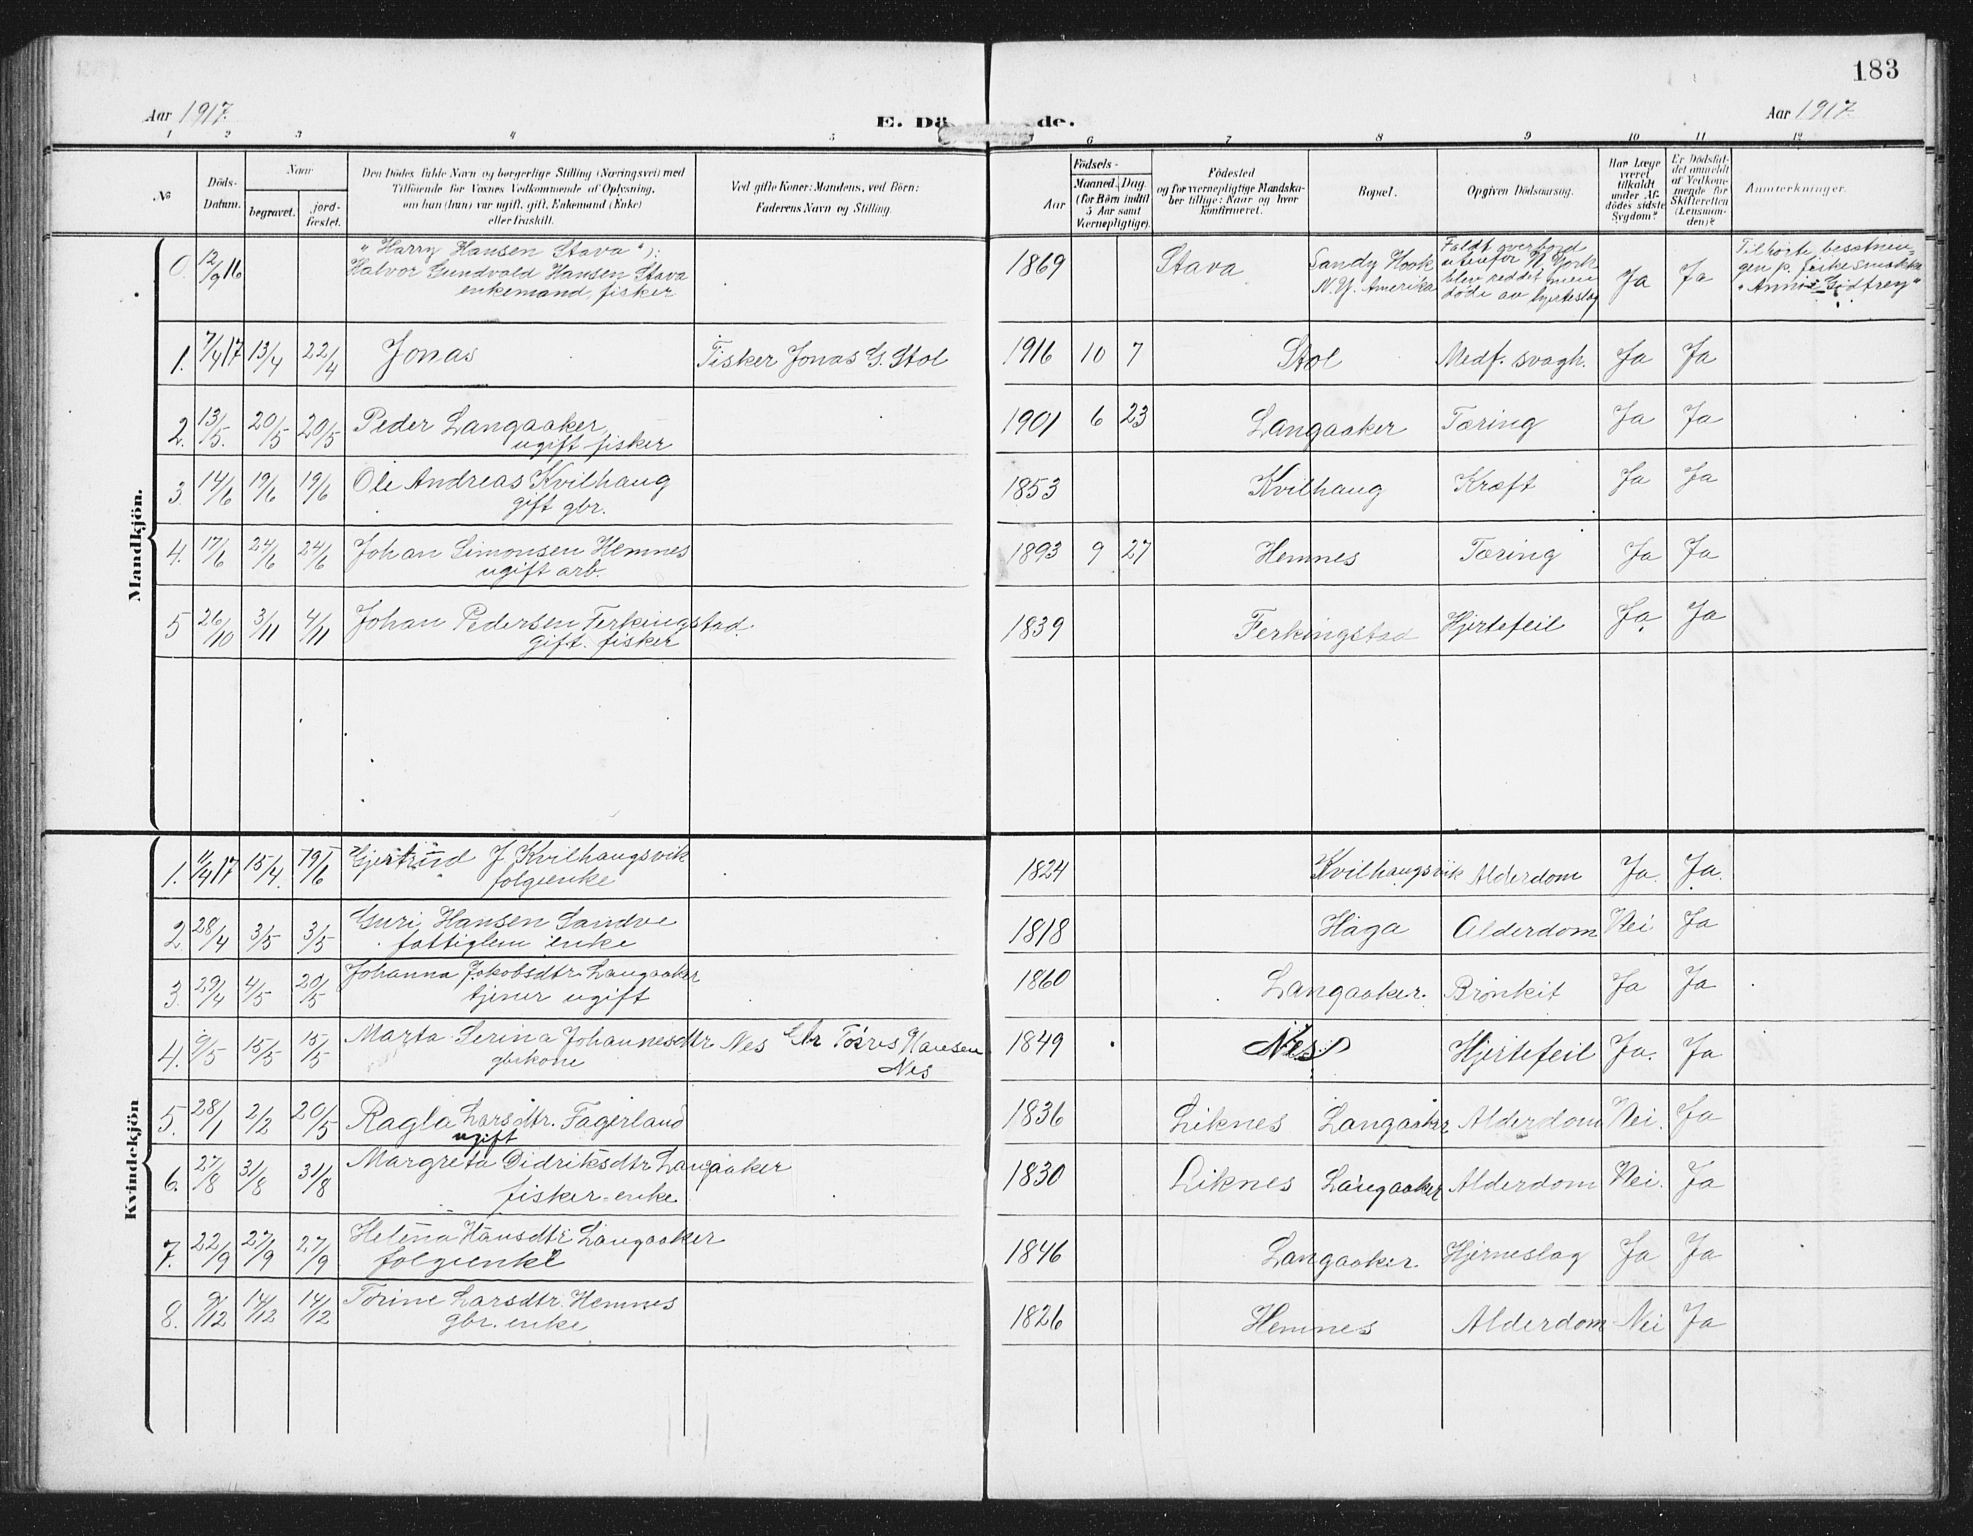 183
Aar 1917. E. Dö de. Aar 1917.
1 2 3 4 5 6 7 8 9 10 11 12
No
Döds-Datum.
Naar
begravet.
jord-fæstet.
Den Dödes fulde Navn og borgerlige Stilling (Næringsvei) med
Tilföiende for Voxnes Vedkommende af Oplysning,
om han (hun) var ugift, gift, Enkemand (Enke)
eller fraskilt.
Ved gifte Koner: Mandens, ved Börn:
Faderens Navn og Stilling.
Födsels-
Aar
Maaned. Dag.
(for Börn indtil
5 Aar samt
Værnepligtige).
Födested
og for værnepligtige Mandska-
ber tillige: Naar og hvor
konfirmeret.
Bopæl.
Opgiven Dödsaarsag.
Har Læge
været
tilkaldt
under Af-
dödes sidste
Sygdom?
Er Dödsfal-
det anmeldt
af Vedkom-
mende for
Skifteretten
(Lensman-
den)?
Anmærkninger.
Mandkjön.
0. 12/9 16 "Harry Hansen Stava"):
Halvor Gundvald Hansen Stava
enkemand fisker
1869 Stava
Sandy Hook
N.Y. Amerika
Faldt overbord
utenfor N. York
blev reddet men
döde av hjerteslag
Ja Ja
Tilhörte besætnin-
gen p. fiskesmakke
"Annie Godfrey"
1. 7/4 17 13/4 22/4 Jonas Fisker Jonas G. Stol 1916 10 7 Stol Medf. svagh. Ja Ja
2. 13/5. 20/5 20/5 Peder Langaaker
ugift fisker
1901 6 23 Langaaker Tæring Ja Ja
3 14/6 19/6 19/6 Ole Andreas Kvilhaug
gift gbr.
1853 Kvilhaug Kræft Ja Ja
4. 17/6 24/6 24/6 Johan Simonsen Hemnes
ugift arb.
1893 9 27 Hemnes Tæring Ja Ja
5 26/10 3/11 4/11 Johan Pedersen Ferkingstad.
gift. fisker
1839 Ferkingstad Hjertefeil Ja. Ja
Kvindekjön
1. 11/4 17 15/4. 19/6 Gjertrud J Kvilhaugsvik
folgeenke
1824 Kvilhaugsvik Alderdom Ja. Ja.
2 28/4 3/5 3/5 Guri Hansen Sandve
fattiglem enke
1818 Haga Alderdom Nei Ja
3. 29/4 4/5 20/5 Johanna Jakobsdtr. Langaaker
tjener ugift
1860 Langaaker. Bronkit Ja Ja
4. 9/5 15/5 15/5 Marta Serina Johannesdtr Nes Gbr Törres Hansen
gbrkone Nes
1849 Nes Hjertefeil Ja. Ja
5. 28/1 2/2 20/5 Ragla Larsdtr. Fagerland
ugift
1836 Liknes Langaaker Alderdom Nei. Ja
6. 27/8 31/8 31/8 Margreta Didriksdtr Langaaker
fisker-enke
1830 Liknes Langaaker Alderdom Nei. Ja
7. 22/9 27/9 27/9 Helena Hansdtr Langaaker
folgeenke
1846 Langaaker Hjerneslag Ja Ja
8. 9/12 14/12 14/12 Torine Larsdtr. Hemnes
gbr. enke
1826 Hemnes Alderdom Nei Ja